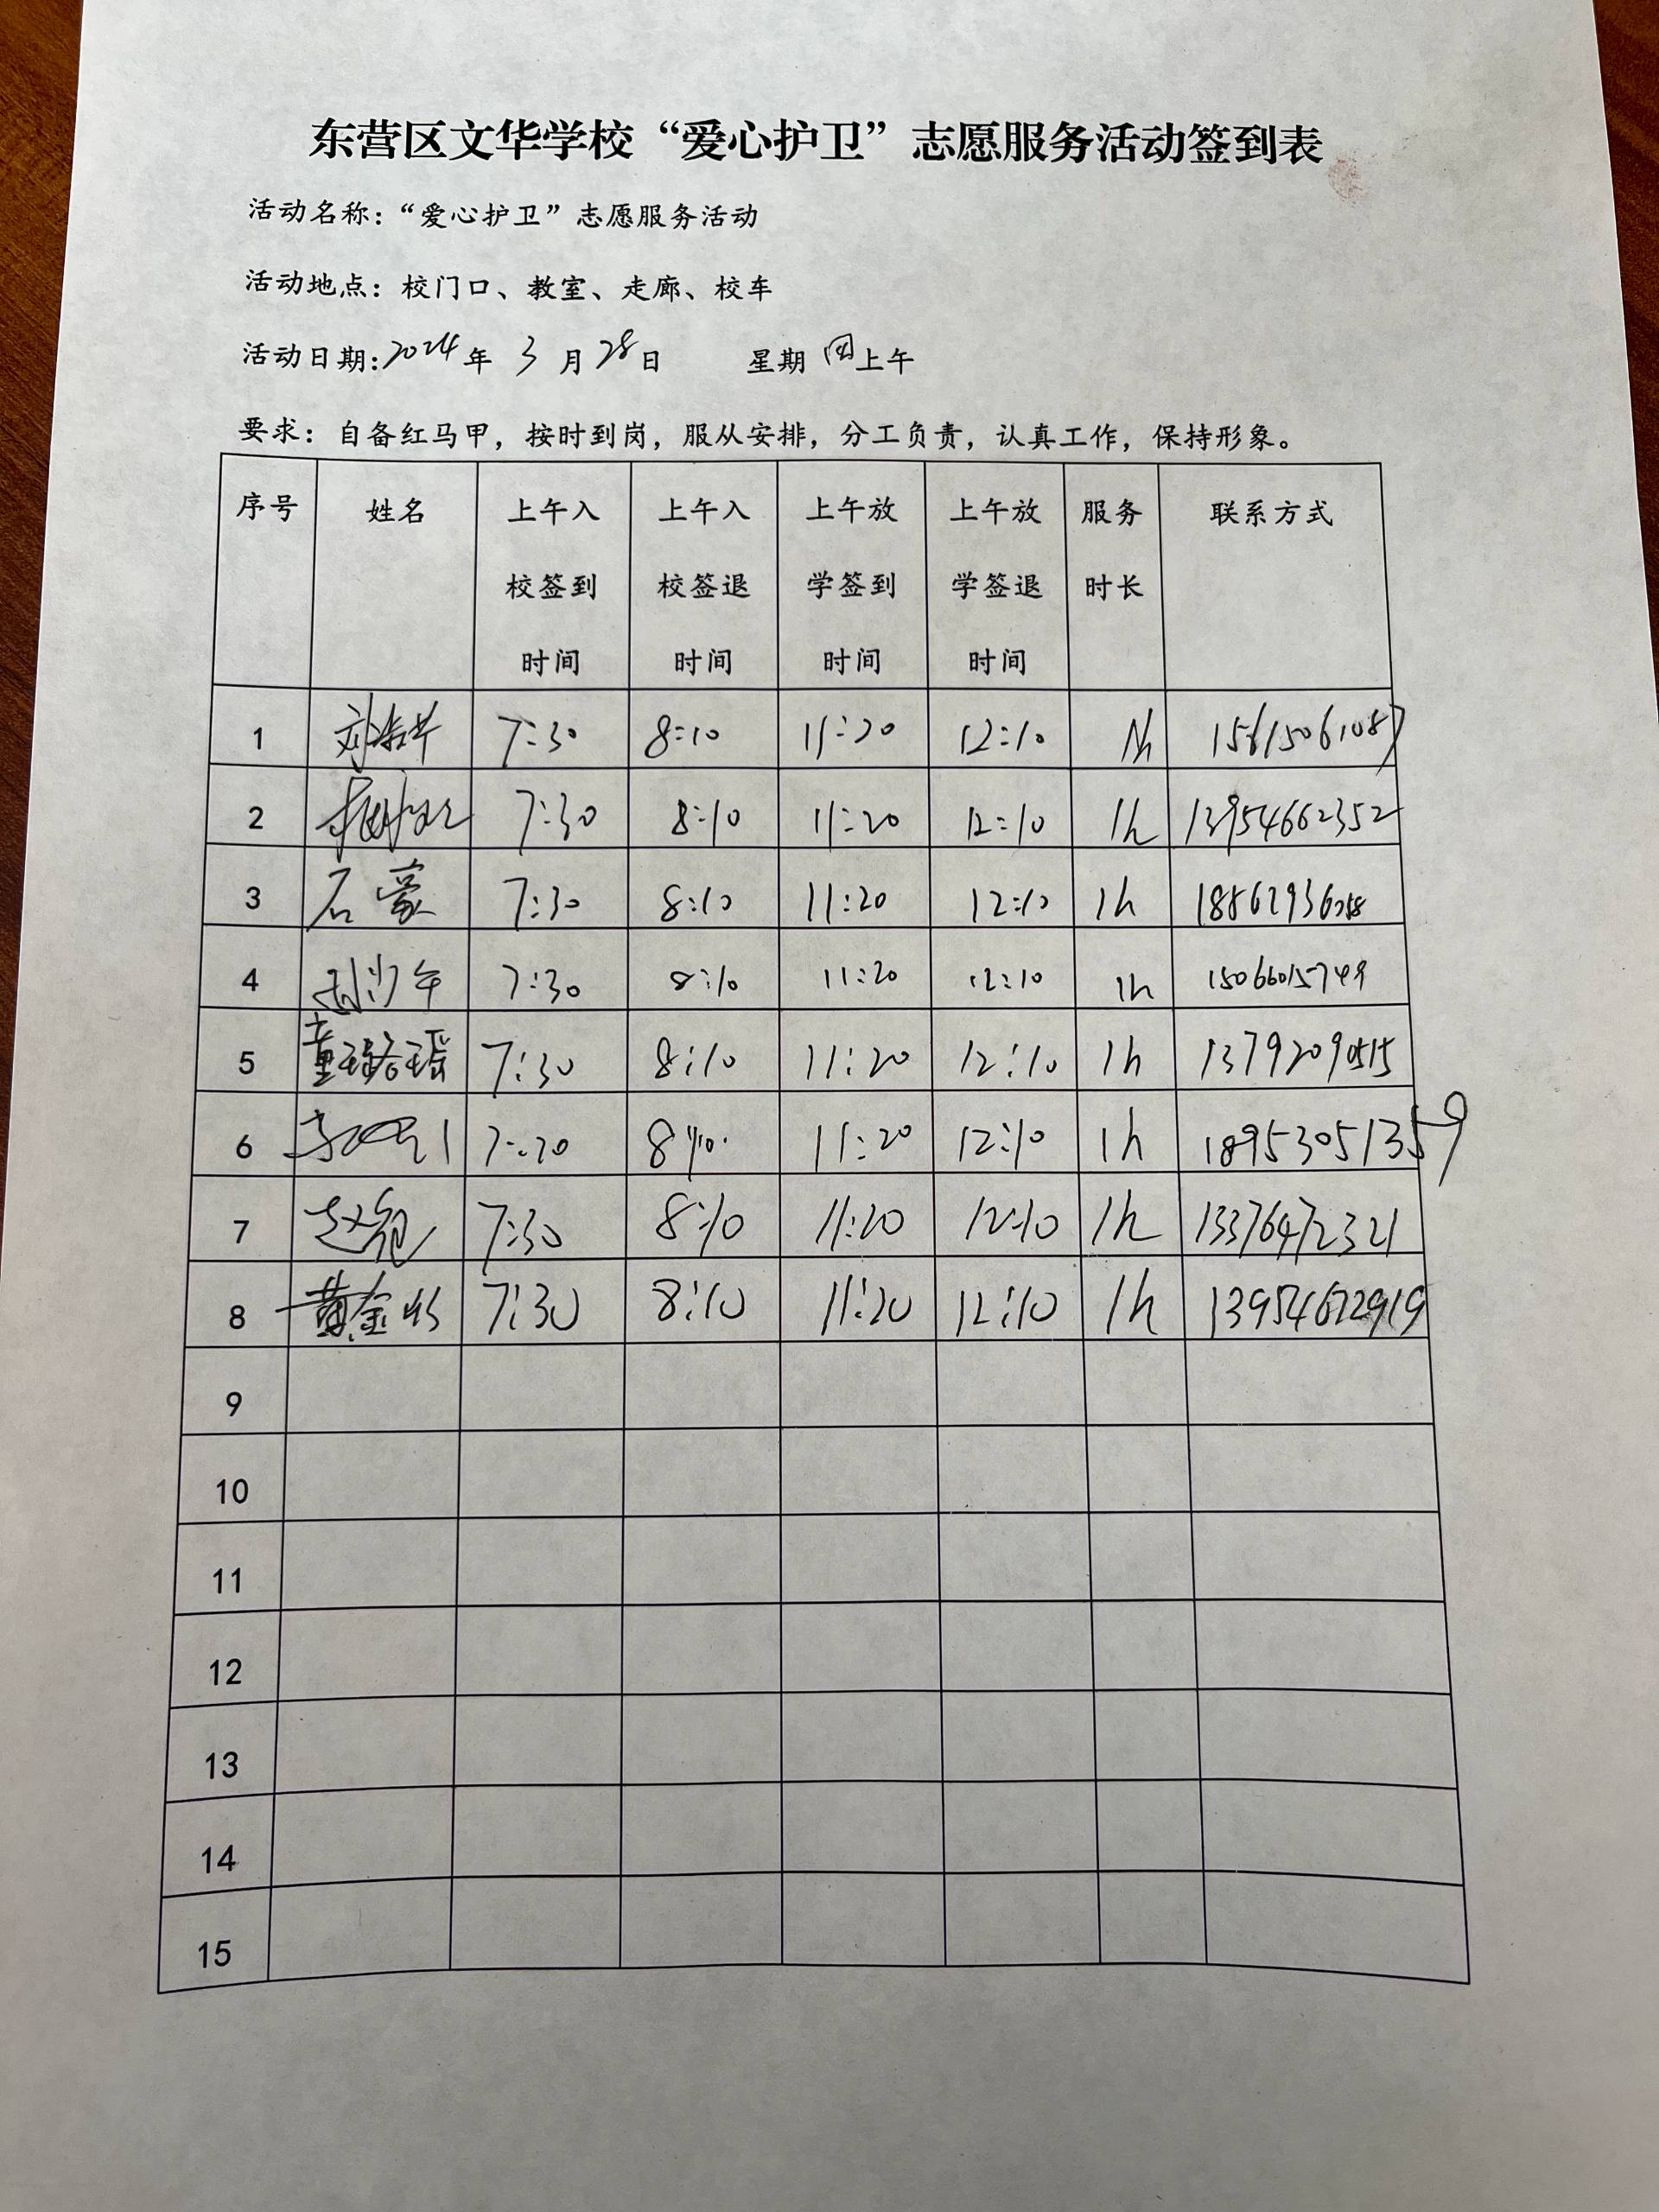 东营区文华学校“爱心护卫”志愿服务活动签到表
活动名称：“爱心护卫”志愿服务活动
活动地点：校门口、教室、走廊、校车
活动日期：2024年 3月28日 星期四上午
要求：自备红马甲，按时到岗，服从安排，分工负责，认真工作，保持形象。
序号 姓名 上午入校签到时间 上午入校签退时间 上午放学签到时间 上午放学签退时间 服务时长 联系方式
1 7:30 8:10 11:20 12:10 1h 15615061087
2 7:30 8:10 11:20 12:10 1h 13954662352
3 石蒙 7:30 8:10 11:20 12:10 1h
4 7:30 8:10 11:20 12:10 1h 15066015749
5 董璐瑶 7:30 8:10 11:20 12:10 1h 13792090515
6 8:10 11:20 12:10 1h 18953051359
7 7:30 8:10 11:20 12:10 1h 13376472321
8 7:30 8:10 11:20 12:10 1h 13954672919
9
10
11
12
13
14
15